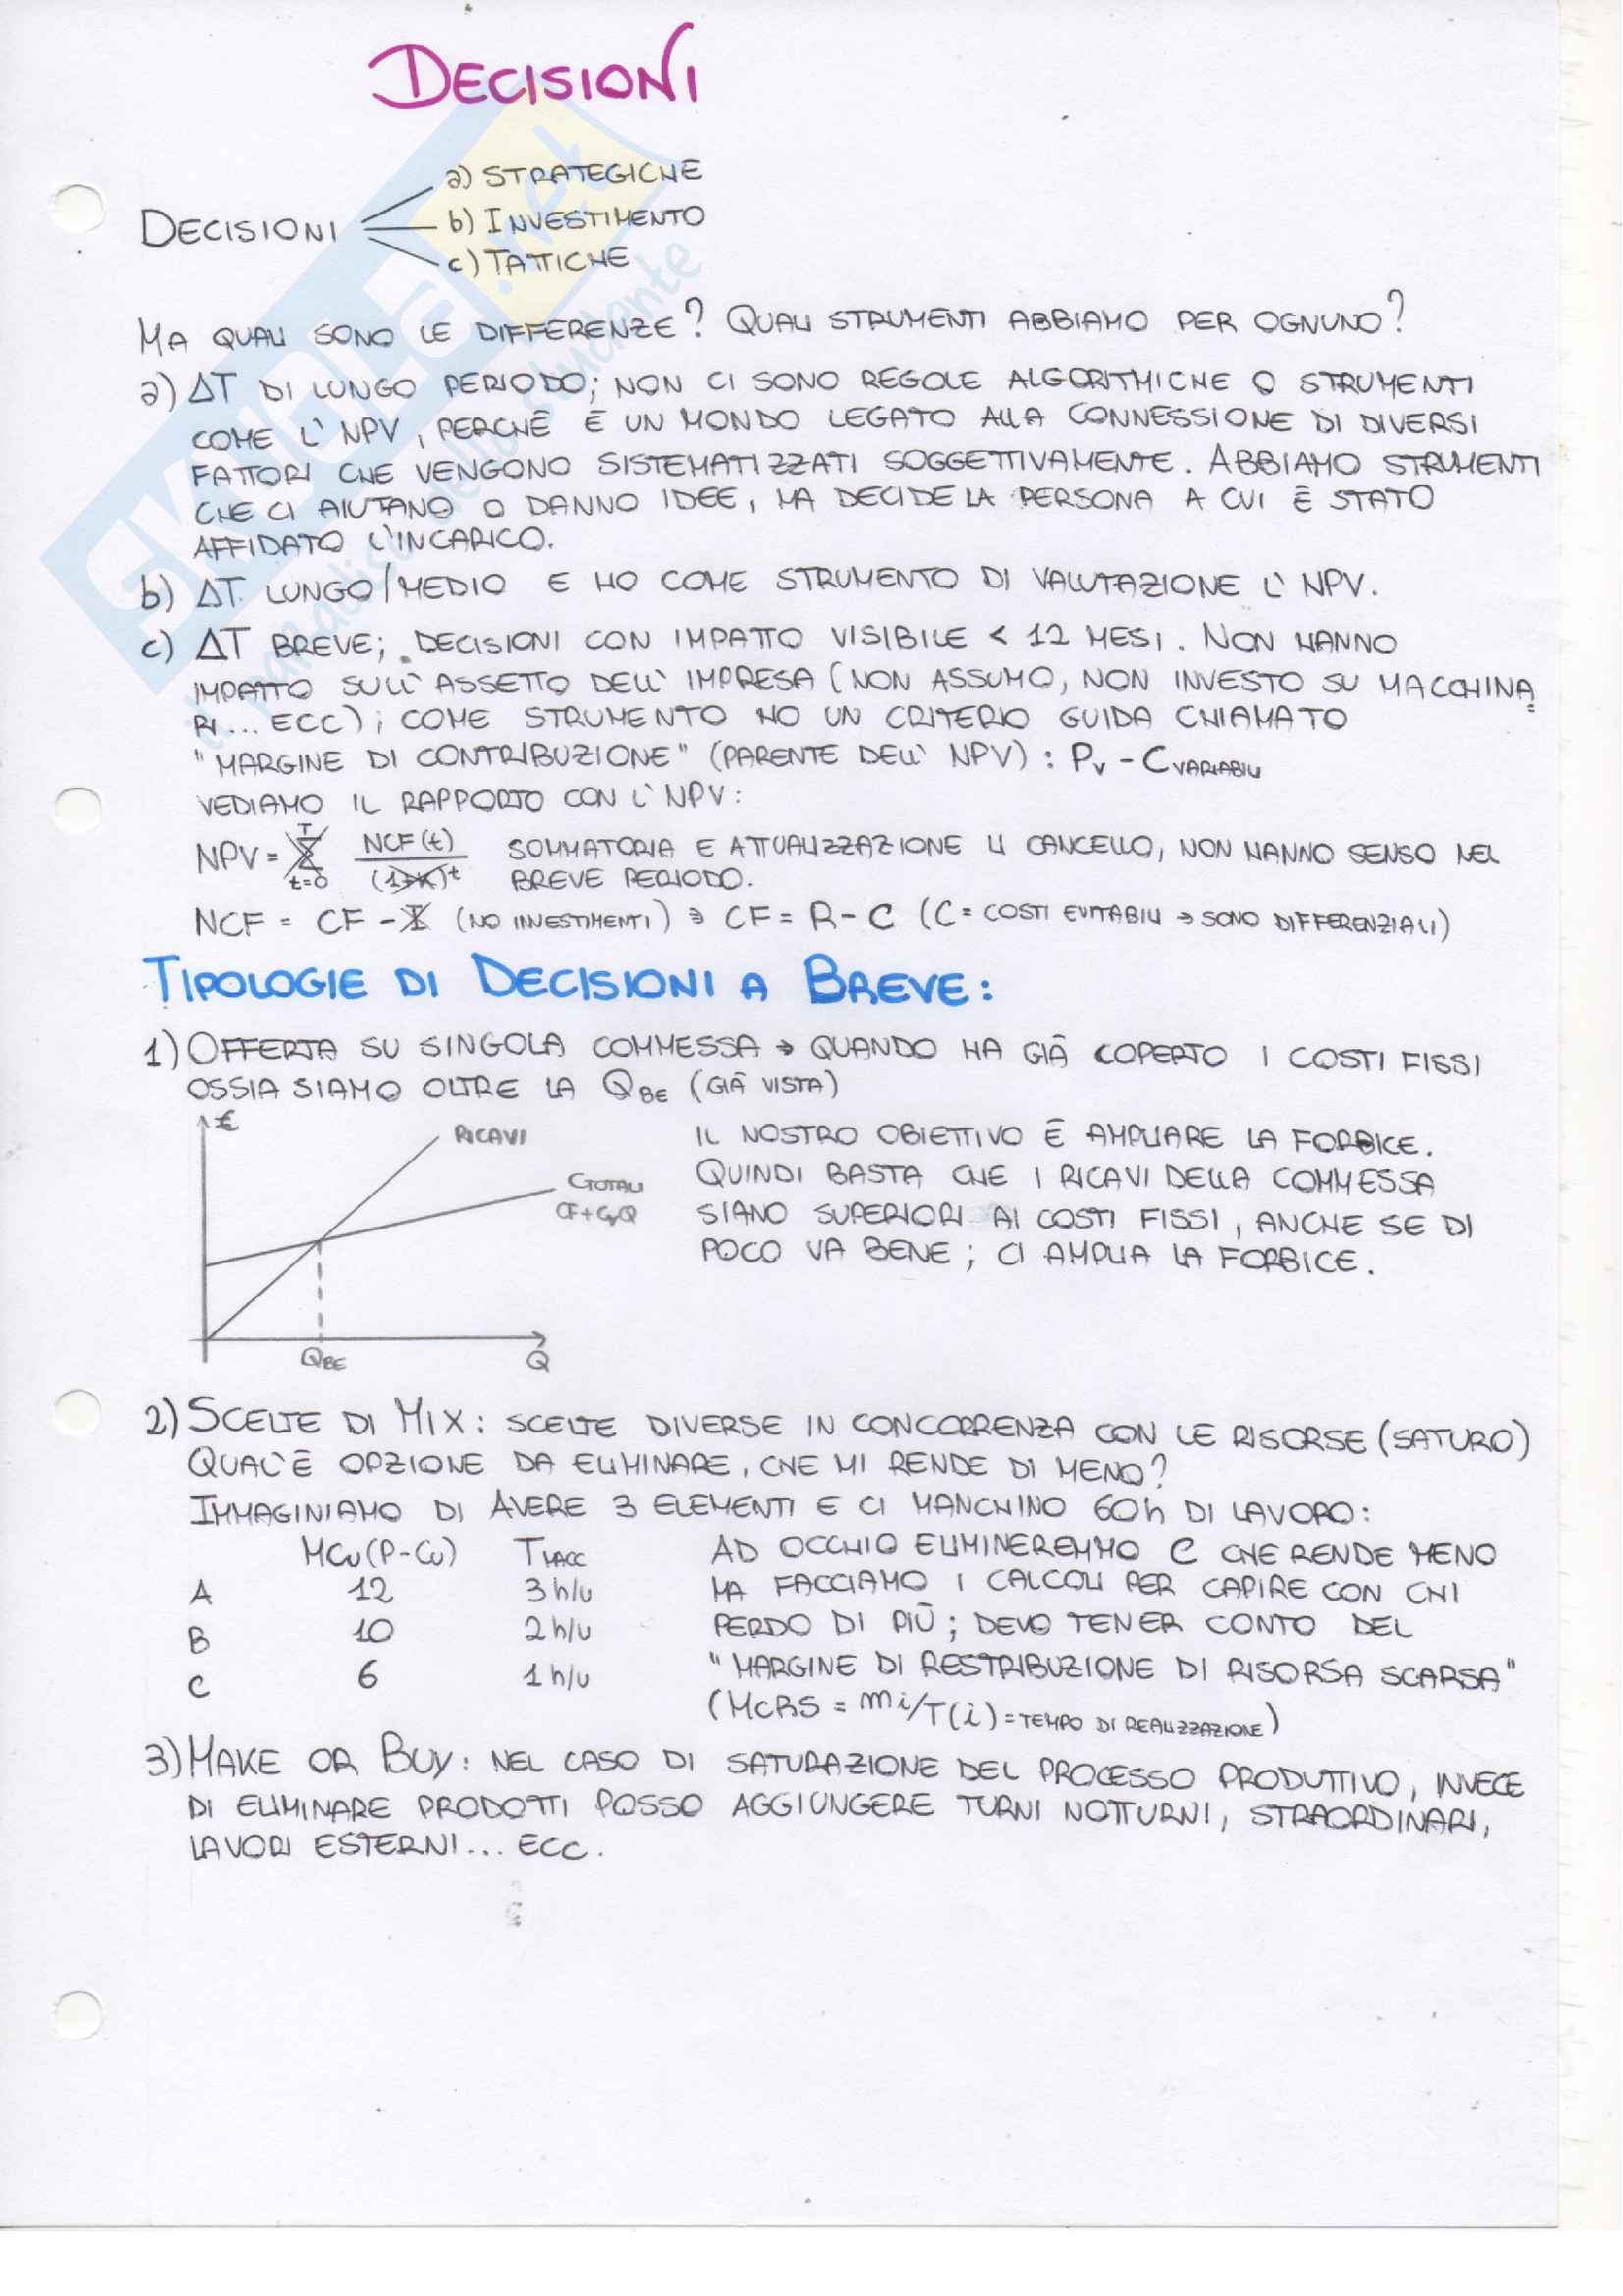 DECISIONI
DECISIONI
a) STRATEGICHE
b) INVESTIMENTO
c) TATTICHE
MA QUALI SONO LE DIFFERENZE? QUALI STRUMENTI ABBIAMO PER OGNUNO?
a) ΔT DI LUNGO PERIODO; NON CI SONO REGOLE ALGORITMICHE O STRUMENTI
COME L'NPV, PERCHÈ È UN MONDO LEGATO ALLA CONNESSIONE DI DIVERSI
FATTORI CHE VENGONO SISTEMATIZZATI SOGGETTIVAMENTE. ABBIAMO STRUMENTI
CHE CI AIUTANO O DANNO IDEE, MA DECIDE LA PERSONA A CUI È STATO
AFFIDATO L'INCARICO.
b) ΔT LUNGO/MEDIO E HO COME STRUMENTO DI VALUTAZIONE L'NPV.
c) ΔT BREVE; DECISIONI CON IMPATTO VISIBILE < 12 MESI. NON HANNO
IMPATTO SULL'ASSETTO DELL'IMPRESA (NON ASSUMO, NON INVESTO SU MACCHINA=
RI... ECC); COME STRUMENTO HO UN CRITERIO GUIDA CHIAMATO
"MARGINE DI CONTRIBUZIONE" (PARENTE DELL'NPV): Pv - CVARIABILI
VEDIAMO IL RAPPORTO CON L'NPV:
NPV = Σ T t=0 NCF(t) / (1+K)^t SOMMATORIA E ATTUALIZZAZIONE LI CANCELLO, NON HANNO SENSO NEL
BREVE PERIODO.
NCF = CF - I (NO INVESTIMENTI) → CF = R - C (C = COSTI EVITABILI → SONO DIFFERENZIALI)
TIPOLOGIE DI DECISIONI A BREVE:
1) OFFERTA SU SINGOLA COMMESSA → QUANDO HA GIÀ COPERTO I COSTI FISSI
OSSIA SIAMO OLTRE LA QBE (GIÀ VISTA)
€
RICAVI
CTOTALI
CF+CvQ
QBE
Q
IL NOSTRO OBIETTIVO È AMPLIARE LA FORBICE.
QUINDI BASTA CHE I RICAVI DELLA COMMESSA
SIANO SUPERIORI AI COSTI FISSI, ANCHE SE DI
POCO VA BENE; CI AMPLIA LA FORBICE.
2) SCELTE DI MIX: SCELTE DIVERSE IN CONCORRENZA CON LE RISORSE (SATURO)
QUAL'È OPZIONE DA ELIMINARE, CHE MI RENDE DI MENO?
IMMAGINIAMO DI AVERE 3 ELEMENTI E CI MANCHINO 60h DI LAVORO:
MCu(P-Cu) TMACC
A 12 3h/u
B 10 2h/u
C 6 1h/u
AD OCCHIO ELIMINEREMMO C CHE RENDE MENO
MA FACCIAMO I CALCOLI PER CAPIRE CON CHI
PERDO DI PIÙ; DEVO TENER CONTO DEL
"MARGINE DI RESTRIBUZIONE DI RISORSA SCARSA"
(MCRS = mi/T(i) = TEMPO DI REALIZZAZIONE)
3) MAKE OR BUY: NEL CASO DI SATURAZIONE DEL PROCESSO PRODUTTIVO, INVECE
DI ELIMINARE PRODOTTI POSSO AGGIUNGERE TURNI NOTTURNI, STRAORDINARI,
LAVORI ESTERNI... ECC.